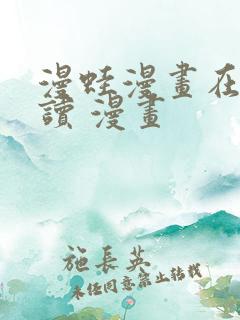 漫蛙漫畫在
讀 漫畫
施長英
未經同意禁止轉載